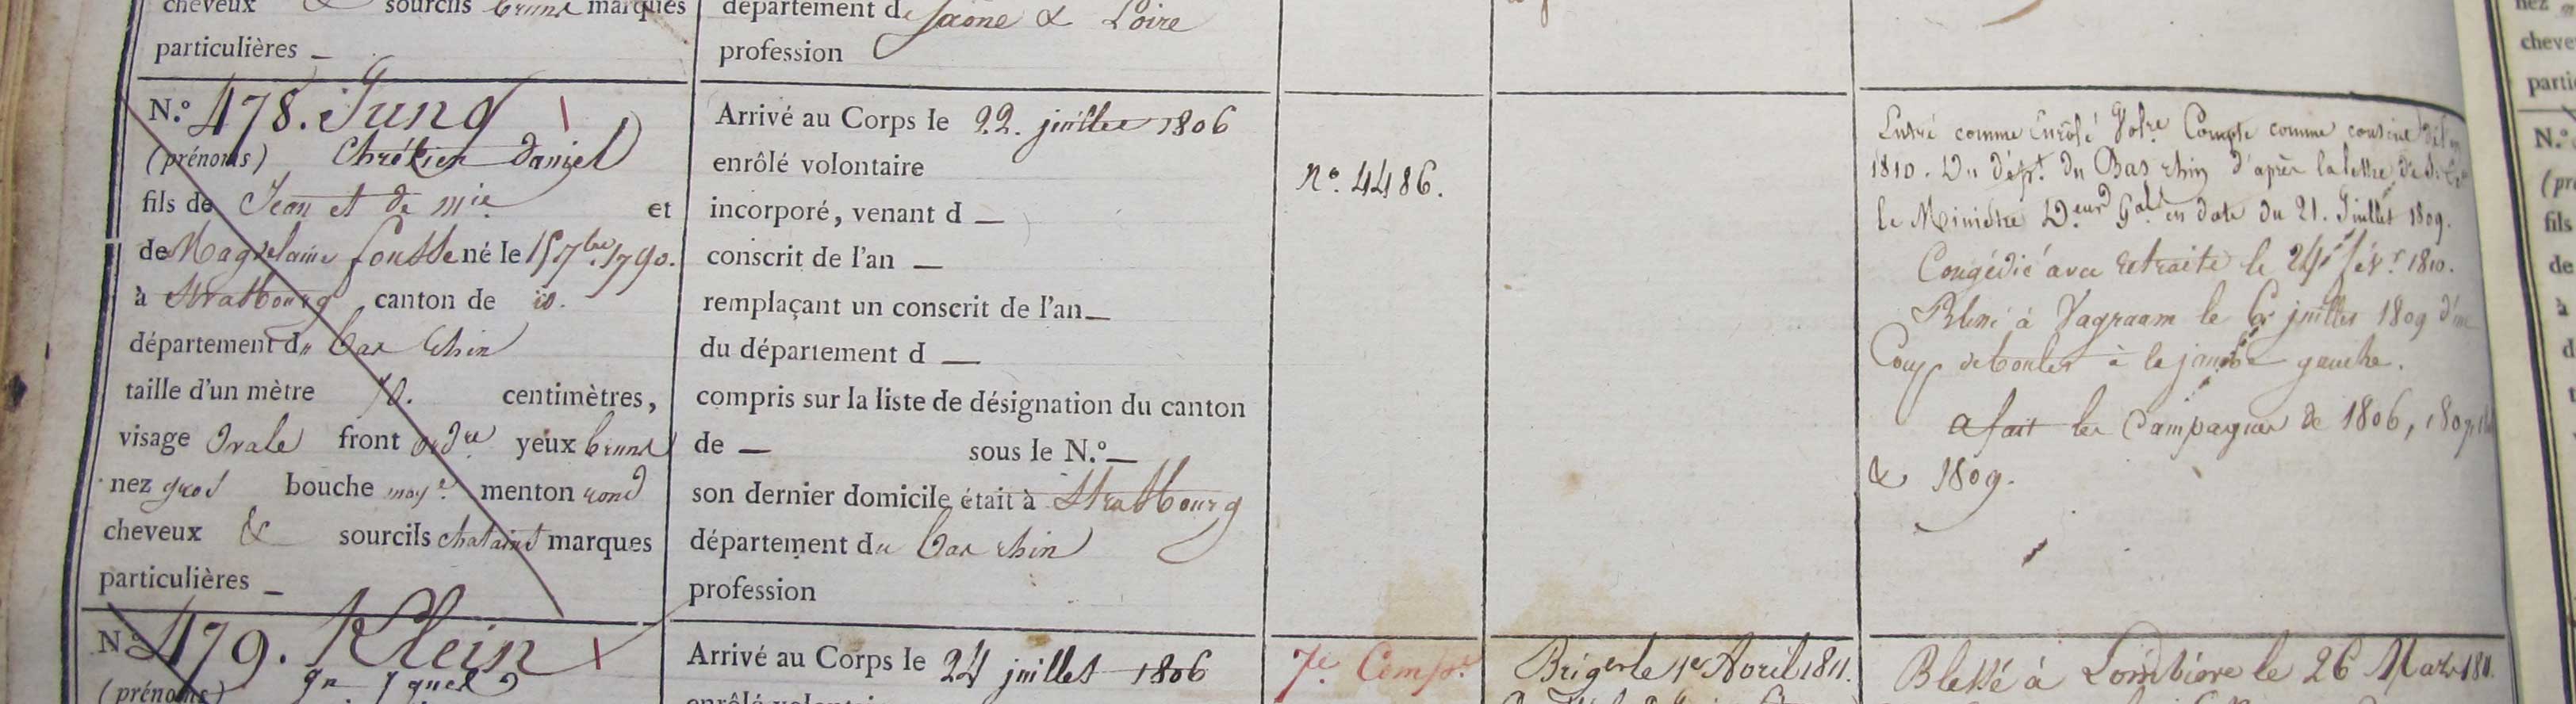 cheveux & sourcils bruns marques
particulières _
département de Saone & Loire
profession
N.° 478. Jung
(prénoms) Chrétien Daniel
fils de Jean et de Mie et
de Magdelaine né le 15 7bre 1790.
à Strasbourg canton de id.
département du bas Rhin
taille d'un mètre 70. centimètres,
visage Ovale front ordre yeux bruns
nez gros bouche moye menton rond
cheveux & sourcils chatains marques
particulières _
Arrivé au Corps le 22. juillet 1806
enrôlé volontaire
incorporé, venant d _
conscrit de l'an _
remplaçant un conscrit de l'an _
du département d _
compris sur la liste de désignation du canton
de _ sous le N.° _
son dernier domicile était à Strasbourg
département du bas rhin
profession
N.° 4486.
Entré comme Enrôlé Volre Compte comme conscrit de l'an
1810. Du dépt. du Bas rhin d'après la lettre de S. Ex
le Ministre Deur Gal en date du 21. Juillet 1809.
Congédié avec retraite le 24 févr 1810.
Blessé à Vagraam le 6 juillet 1809 d'un
Coup de boulet à la jambe gauche.
a fait les Campagnes de 1806, 1807,
& 1809.
N.° 479. Klein
(prénoms)
Arrivé au Corps le 24 juillet 1806
enrôlé volontaire
7e Compe
Briger le 1er Avril 1811.
Blessé à le 26 Mars 1811.
nez
cheve
parti
N.°
(pr
fils
de
à
d